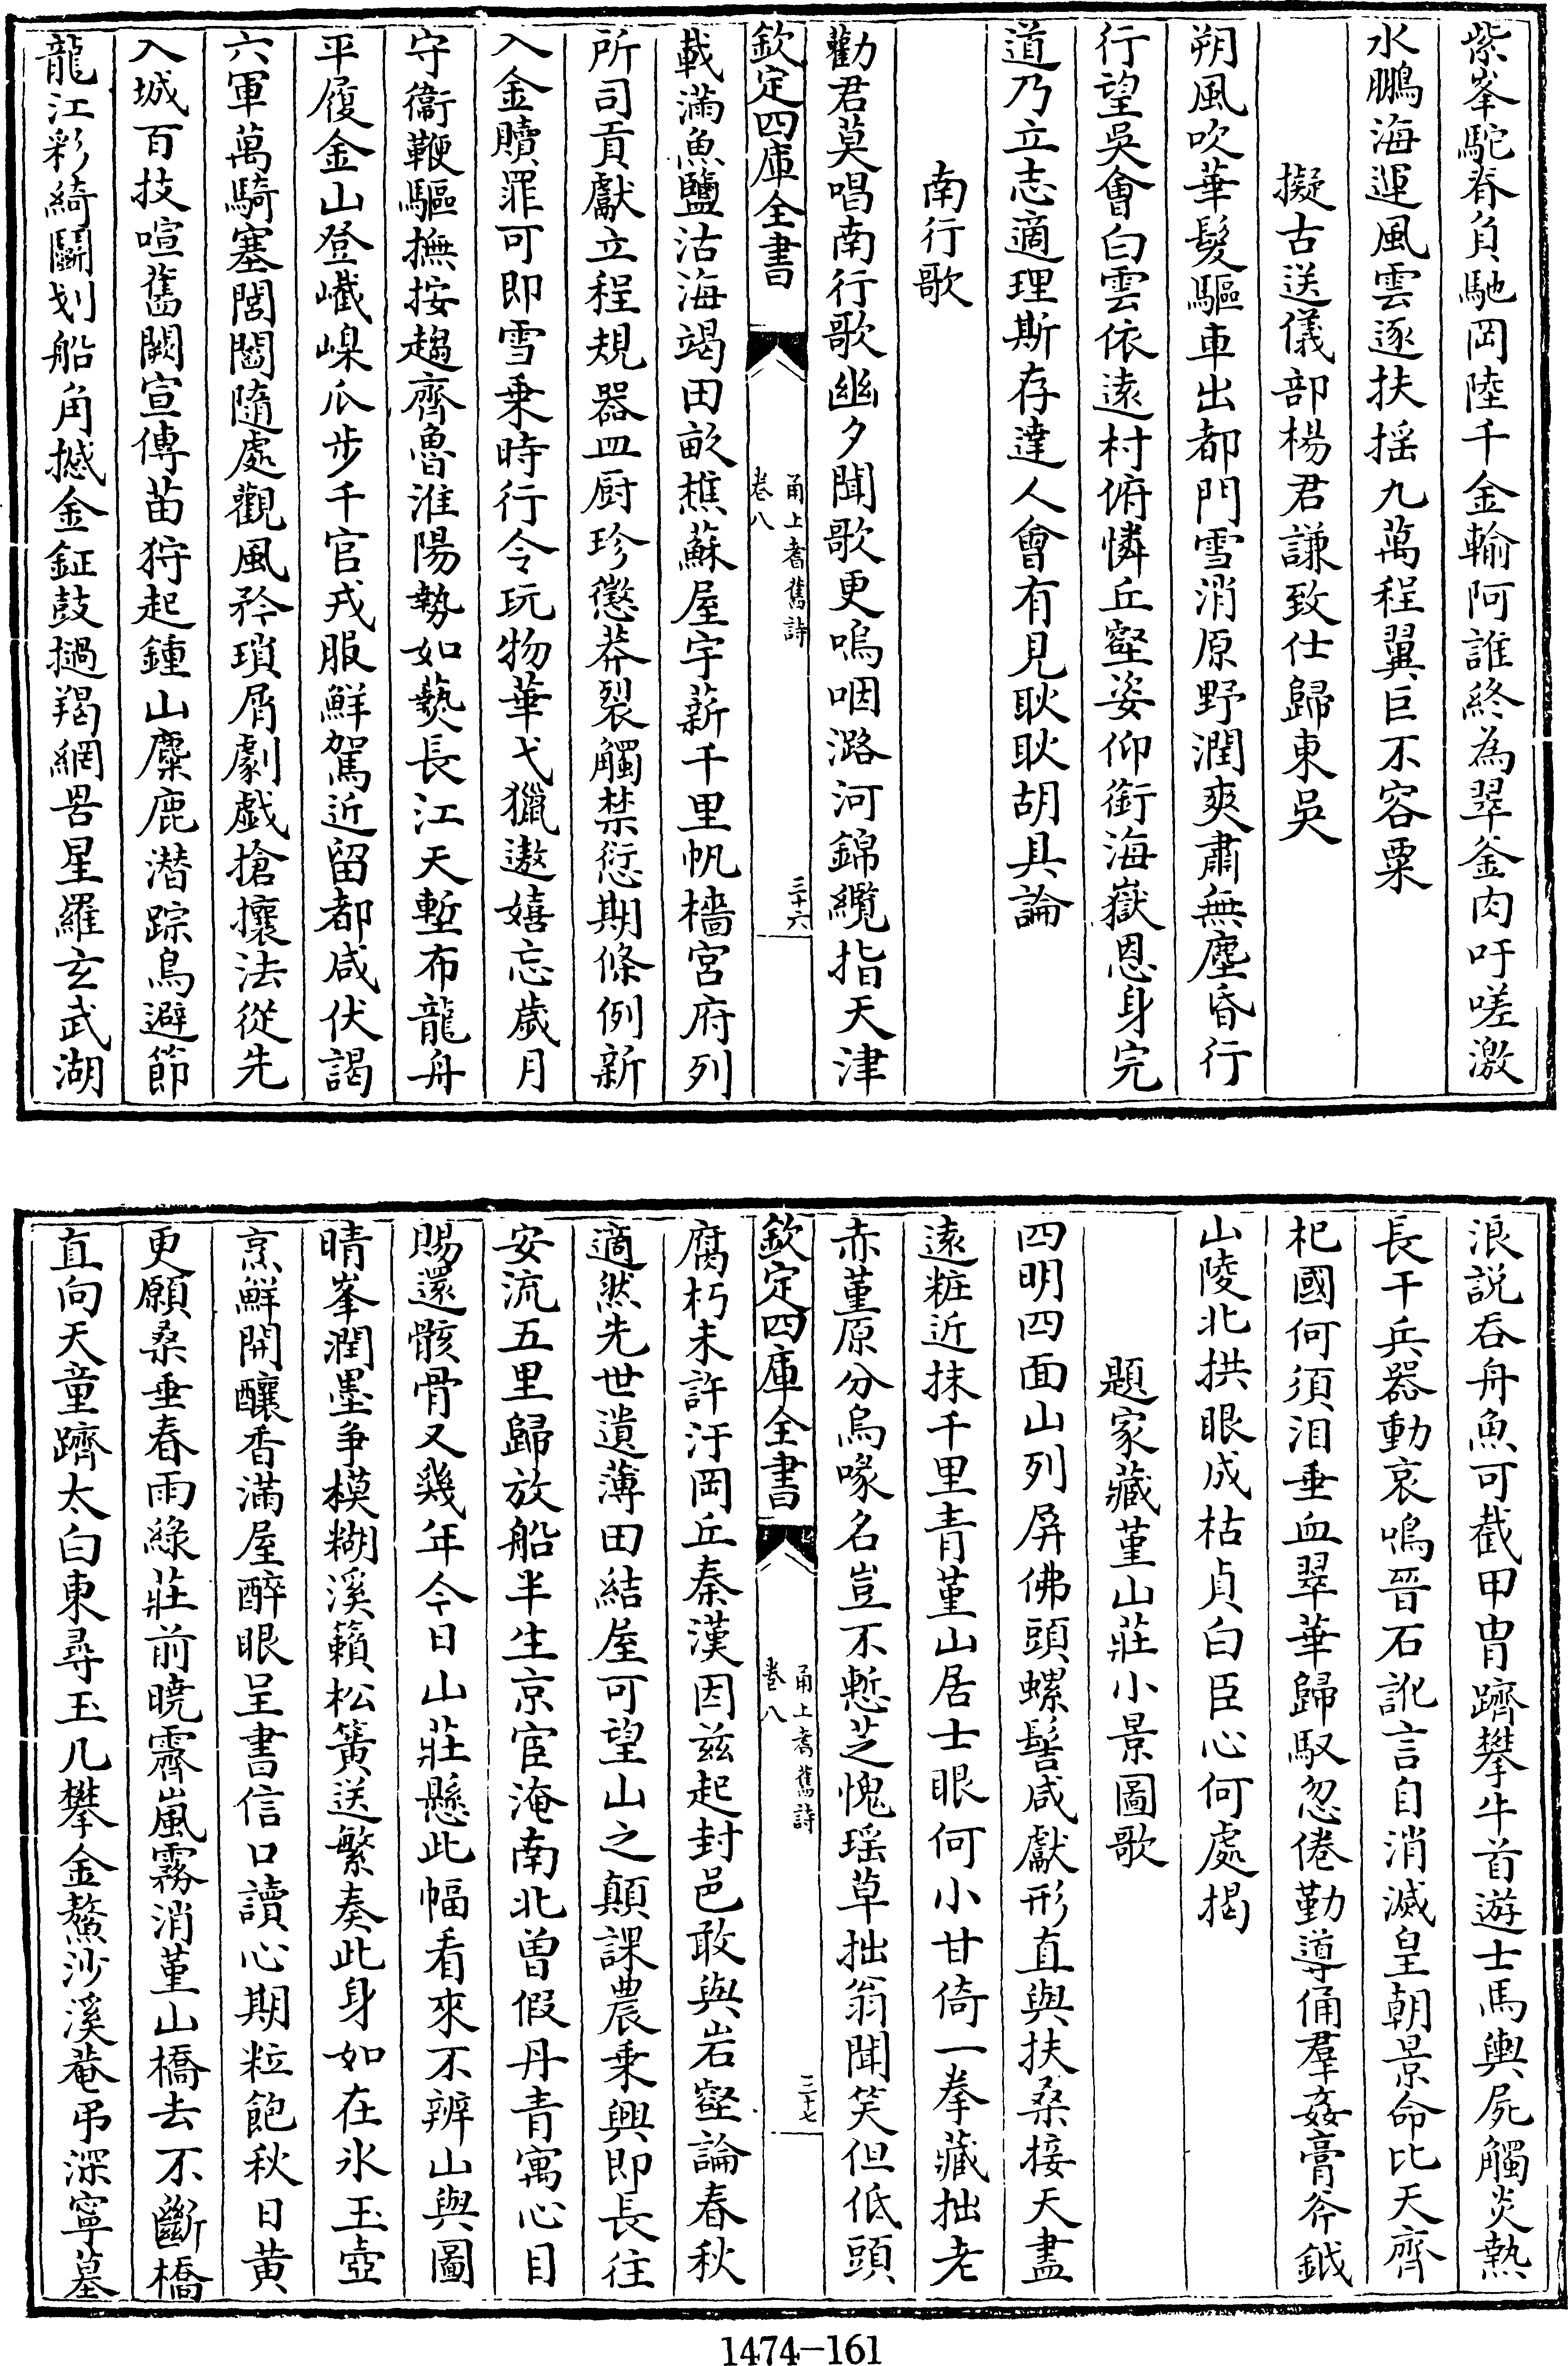 紫峯駝脊負馳岡陸千金輸阿誰終為翠釜肉吁嗟激
水鵬海運風雲逐扶揺九萬程翼巨不容粟
擬古送儀部楊君謙致仕歸東吳
朔風吹華髮驅車出都門雪消原野潤爽肅無塵昏行
行望吳會白雲依遠村俯憐丘壑姿仰銜海嶽恩身完
道乃立志適理斯存達人會有見耿耿胡具論
南行歌
勸君莫唱南行歌幽夕聞歌更嗚咽潞河錦纜指天津
欽定四庫全書
甬上耆舊詩
卷八
三十六
載滿魚鹽沽海竭田畝樵蘇屋宇薪千里帆檣宮府列
所司貢獻立程規器皿厨珍懲莽裂觸禁愆期條例新
入金贖罪可即雪乗時行令玩物華弋獵遨嬉忘歲月
守衞鞭驅撫按趨齊魯淮陽勢如爇長江天塹布龍舟
平履金山登嶻嵲爪步千官戎服鮮駕近留都咸伏謁
六軍萬騎塞閭閻隨處觀風矜瑣屑劇戲搶攘法從先
入城百技喧舊闕宣傳苗狩起鍾山麋鹿潜踪鳥避節
龍江彩綺鬬划船角撼金鉦鼓撾羯網罟星羅玄武湖
浪說吞舟魚可截甲胄躋攀牛首遊士馬輿屍觸炎熱
長干兵器動哀鳴晉石訛言自消滅皇朝景命比天齊
杞國何須泪垂血翠華歸馭忽倦勤導俑羣姦膏斧鉞
山陵北拱眼成枯貞白臣心何處揭
題家藏堇山莊小景圖歌
四明四面山列屏佛頭螺髻咸獻形直與扶桑接天盡
遠粧近抹千里青堇山居士眼何小甘倚一拳藏拙老
赤堇原分烏喙名豈不慙芝愧瑶草拙翁聞笑但低頭
欽定四庫全書
甬上耆舊詩
卷八
三十七
腐朽未許汙岡丘秦漢因兹起封邑敢與岩壑論春秋
適然先世遺薄田結屋可望山之顛課農乗興即長往
安流五里歸放船半生京宦淹南北曽假丹青寓心目
賜還骸骨又幾年今日山莊懸此幅看來不辨山與圖
晴峯潤墨爭模糊溪籟松簧送繁奏此身如在氷玉壺
烹鮮開釀香滿屋醉眼呈書信口讀心期粒飽秋日黄
更願桑垂春雨綠莊前曉霽嵐霧消堇山橋去不斷橋
直向天童躋太白東尋玉几攀金鰲沙溪菴弔深寧墓
1474-161